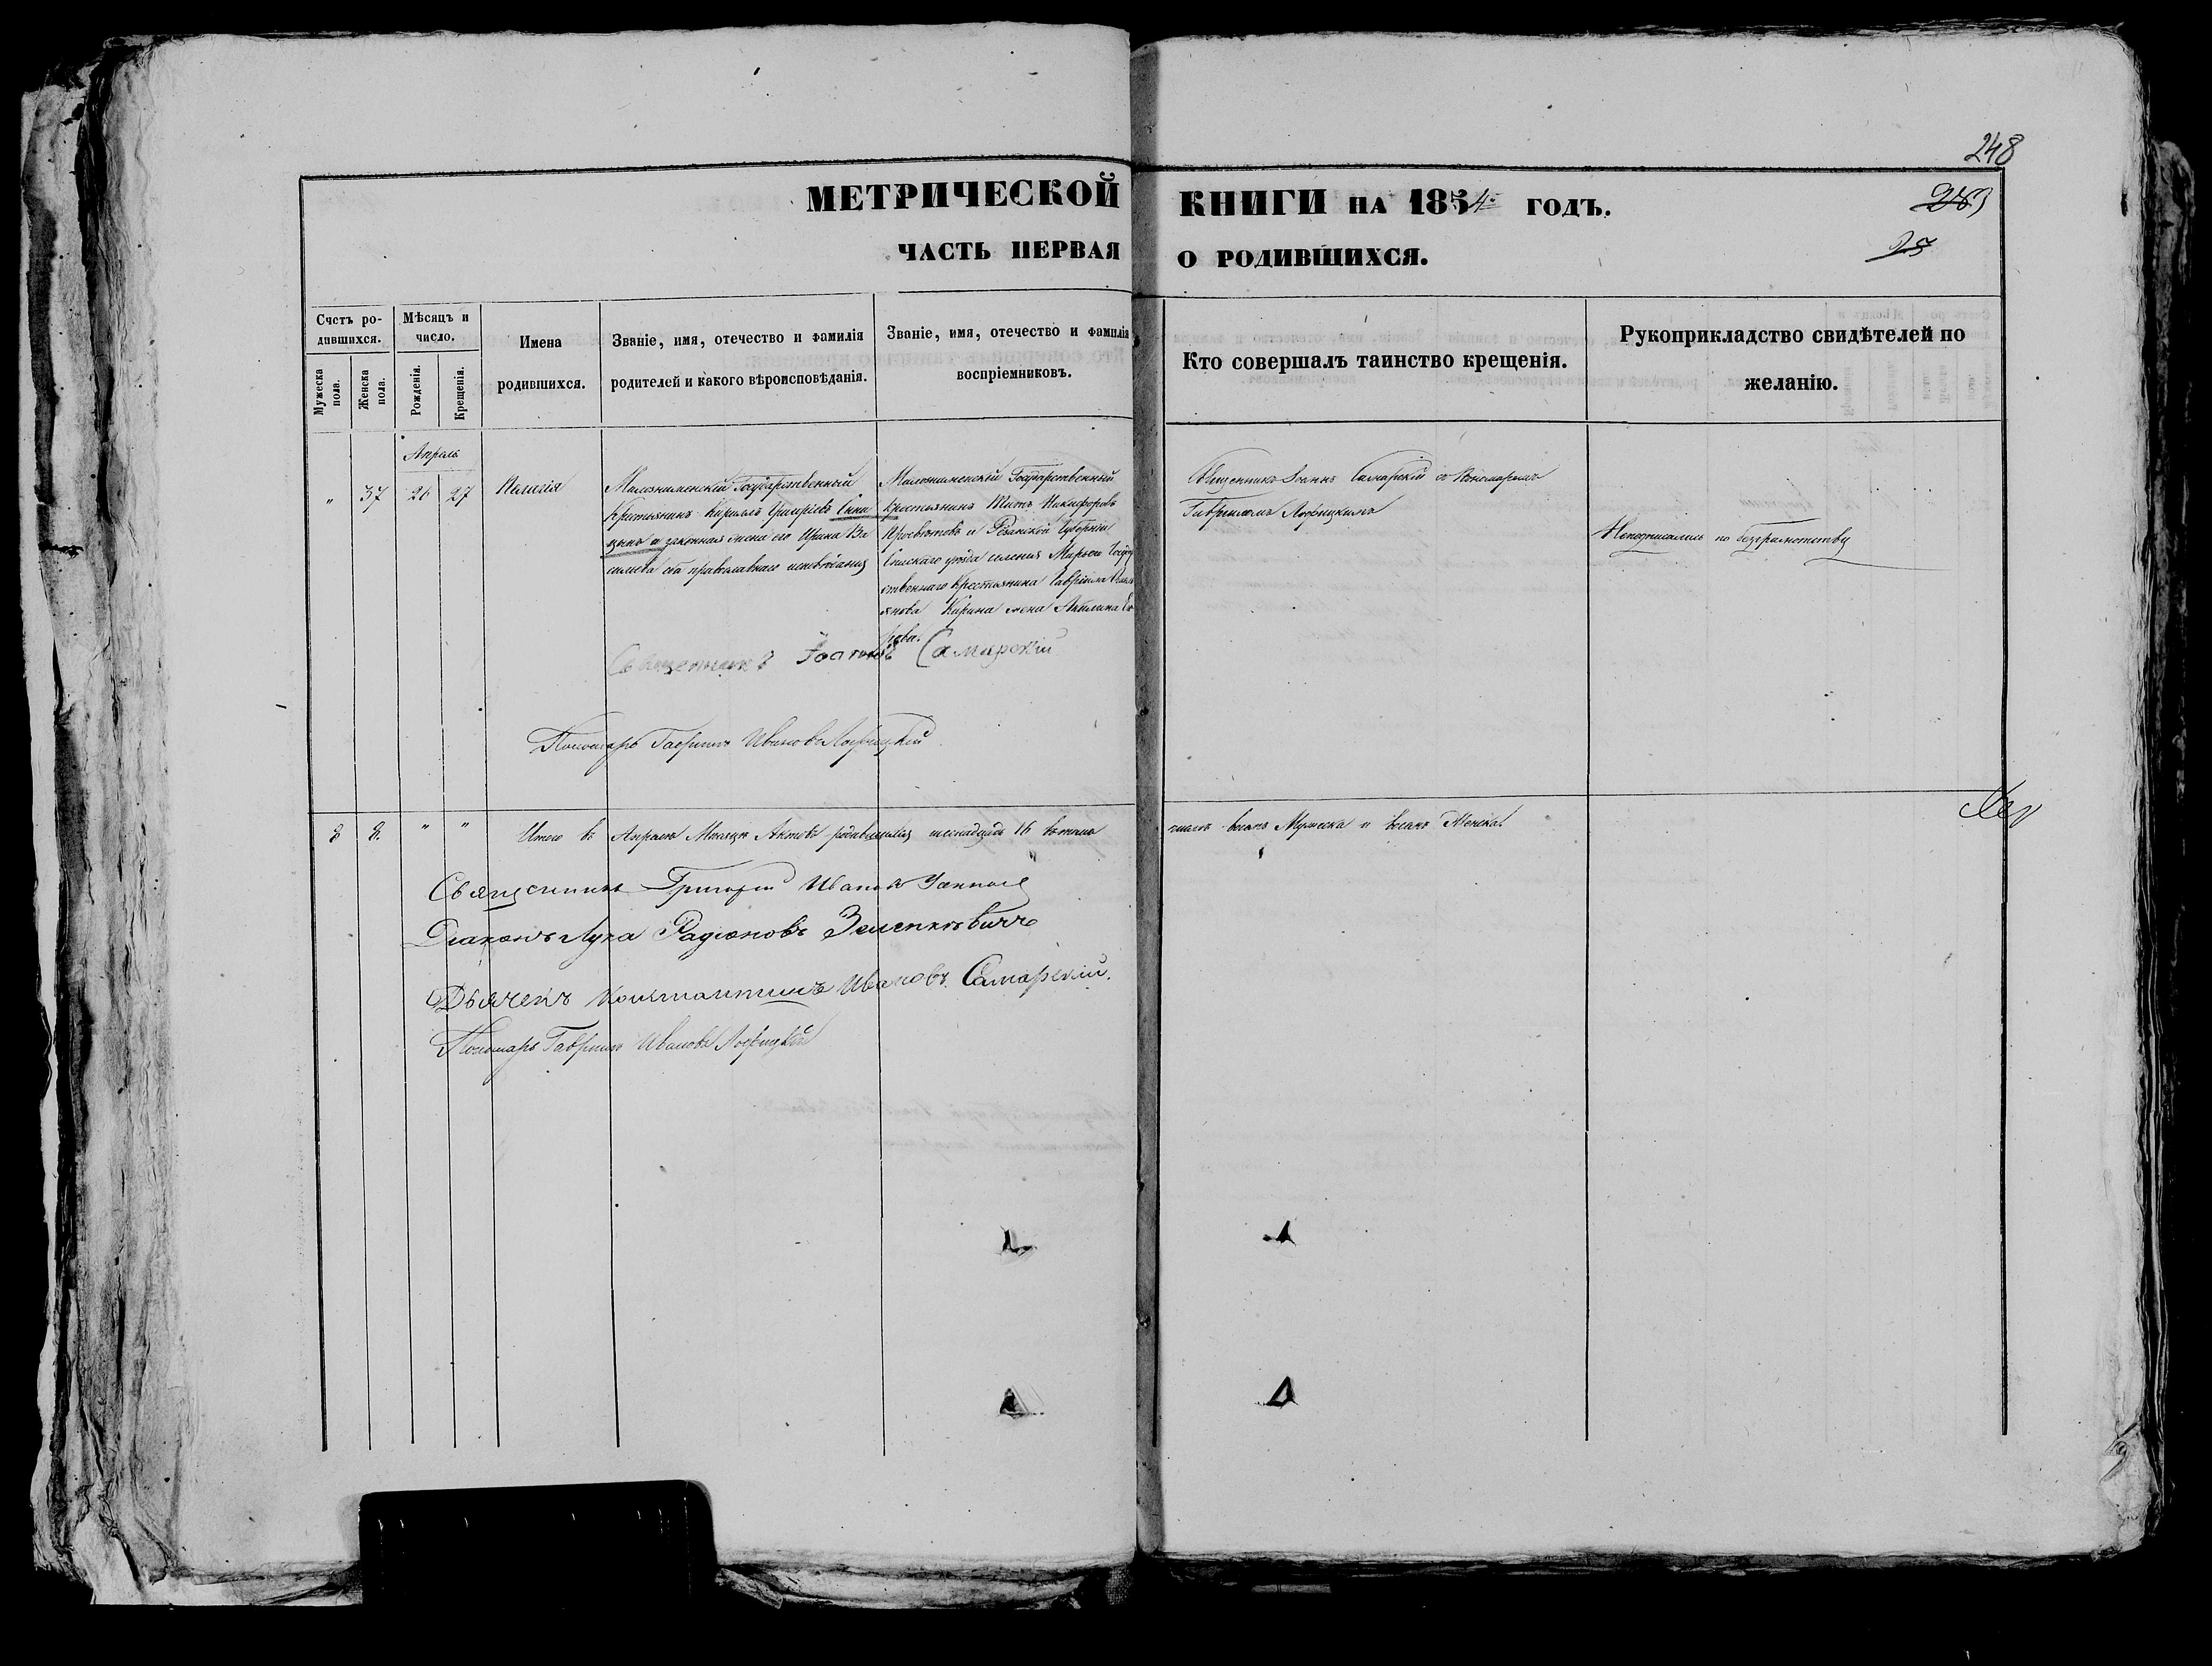 248
МЕТРИЧЕСКОЙ КНИГИ НА 1854 ГОДЪ.
263
25
ЧАСТЬ ПЕРВАЯ О РОДИВШИХСЯ.
Счетъ родившихся.
Мужеска пола.
Женска пола.
Мѣсяцъ и число.
Рожденія.
Крещенія.
Имена родившихся.
Званіе, имя, отечество и фамилія родителей и какого вѣроисповѣданія.
Званіе, имя, отечество и фамилія воспріемниковъ.
Кто совершалъ таинство крещенія.
Рукоприкладство свидѣтелей по желанію.
Апрѣль
" 37 26 27 Пелагія
Государственный
Крестьянинъ Кириллъ Григорьевъ Сини
цынъ и законная жена его Ирина Ва
сильева оба православнаго исповѣданія
Государственный
Крестьянинъ Титъ Никифоровъ
и Рязанской Губерніи
уѣзда селенія Государ
ственнаго Крестьянина Гавріила
жена Акилина
Священникъ Іоаннъ Самарскій съ Пономаремъ
Гавріиломъ
Неподписались по безграмотству
Священникъ Іоаннъ Самарскій
Пономарь Гавріилъ Ивановъ
8 8. " " Итого въ Апрѣлѣ Мѣсяцѣ Актовъ родившихся шеснадцать 16 въ томъ числѣ восемь Мужеска и восемь Женска.
Священникъ Григорій Ивановъ
Діаконъ Лука Радіоновъ Зеленкевичъ
Дьячекъ Константинъ Ивановъ Самарскій.
Пономарь Гавріилъ Ивановъ